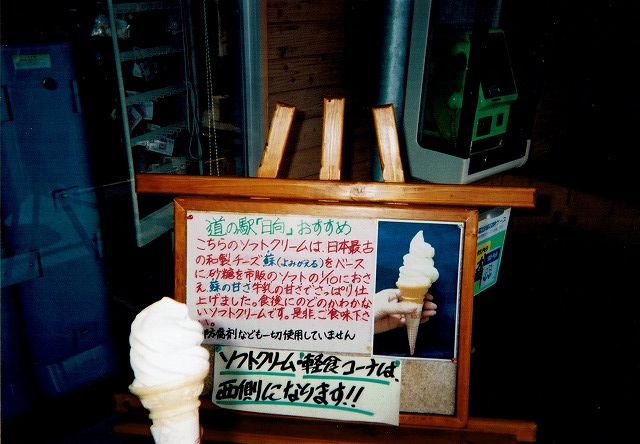 道の駅「日向」おすすめ
こちらのソフトクリームは、日本最古
の和製チーズ蘇(よみがえる)をベース
に、砂糖を市販のソフトの1/10におさ
え蘇の甘さ牛乳の甘さでさっぱり仕
上げました。食後にのどのかわかな
いソフトクリームです。是非、ご賞味下さ
い。
防腐剤なども一切使用していません
ソフトクリーム・軽食コーナーは、
西側になります!!